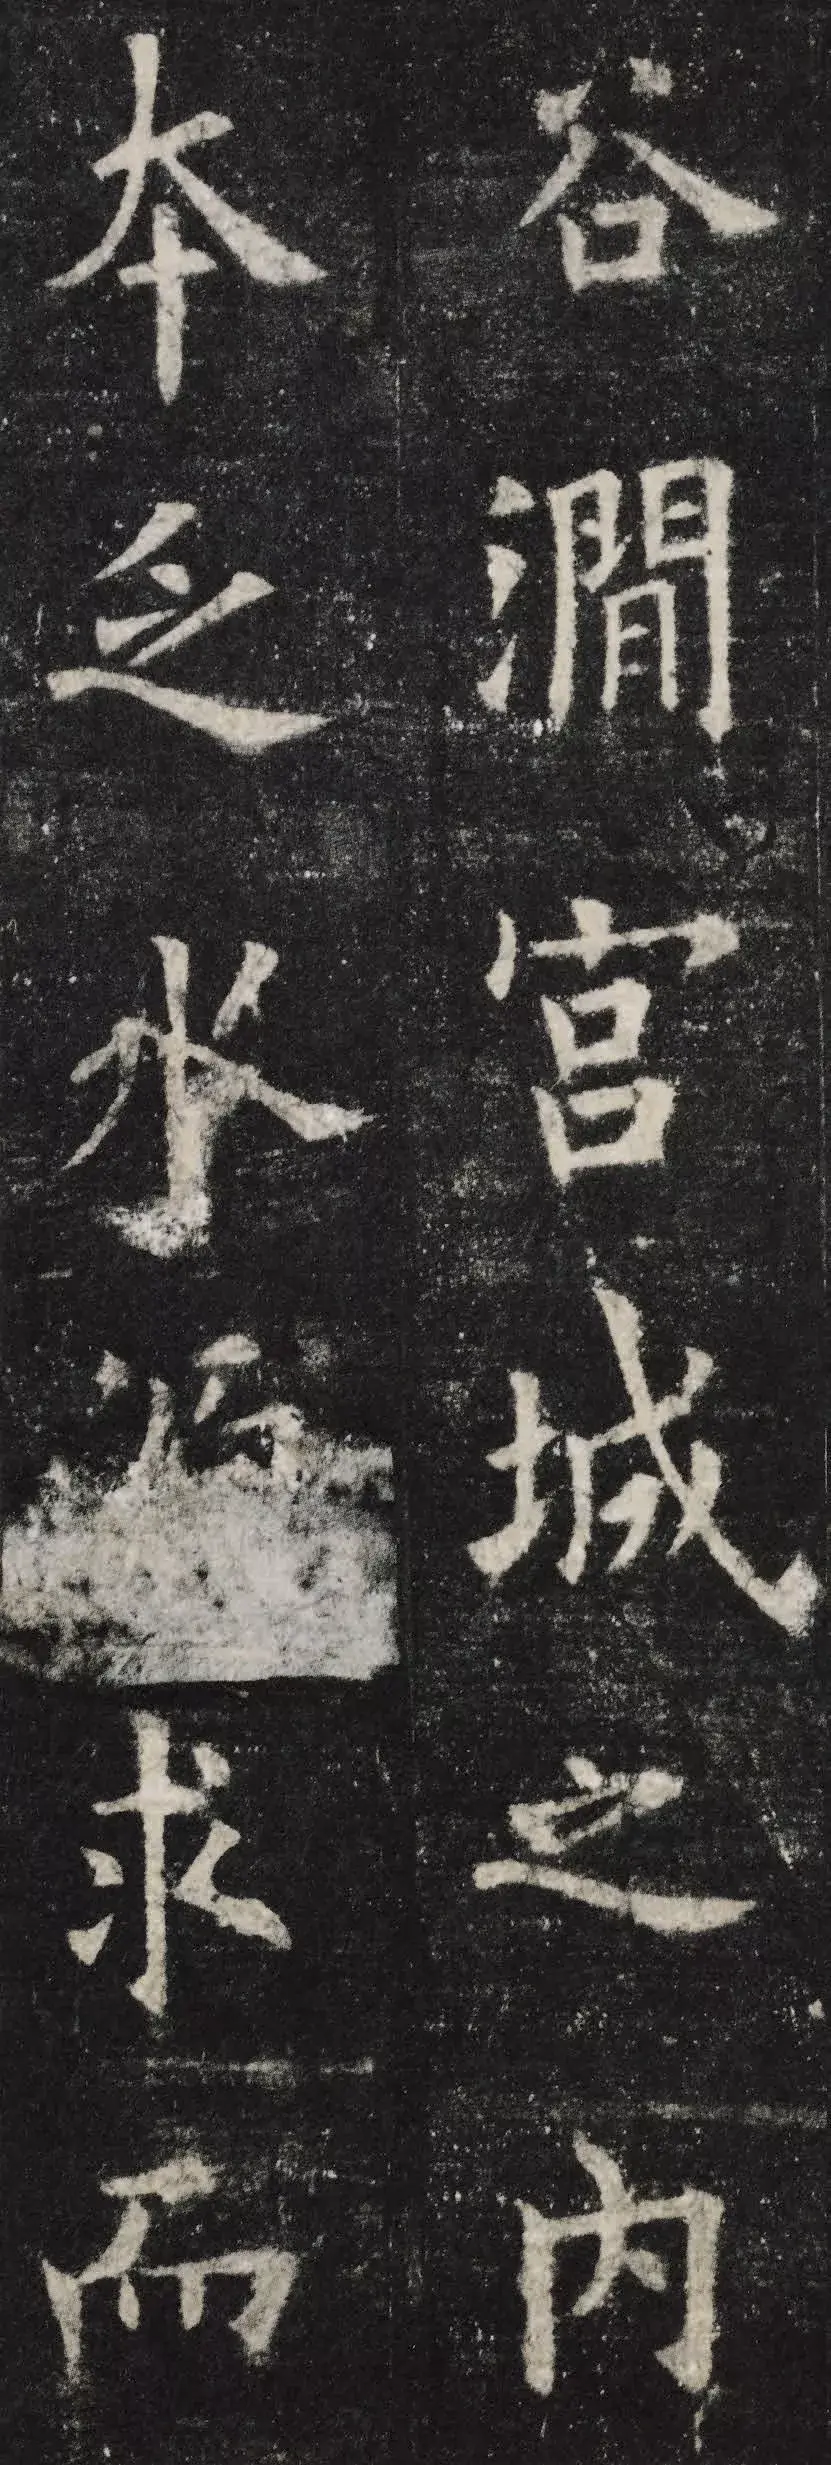 谷澗宮城之內
本乏水求而